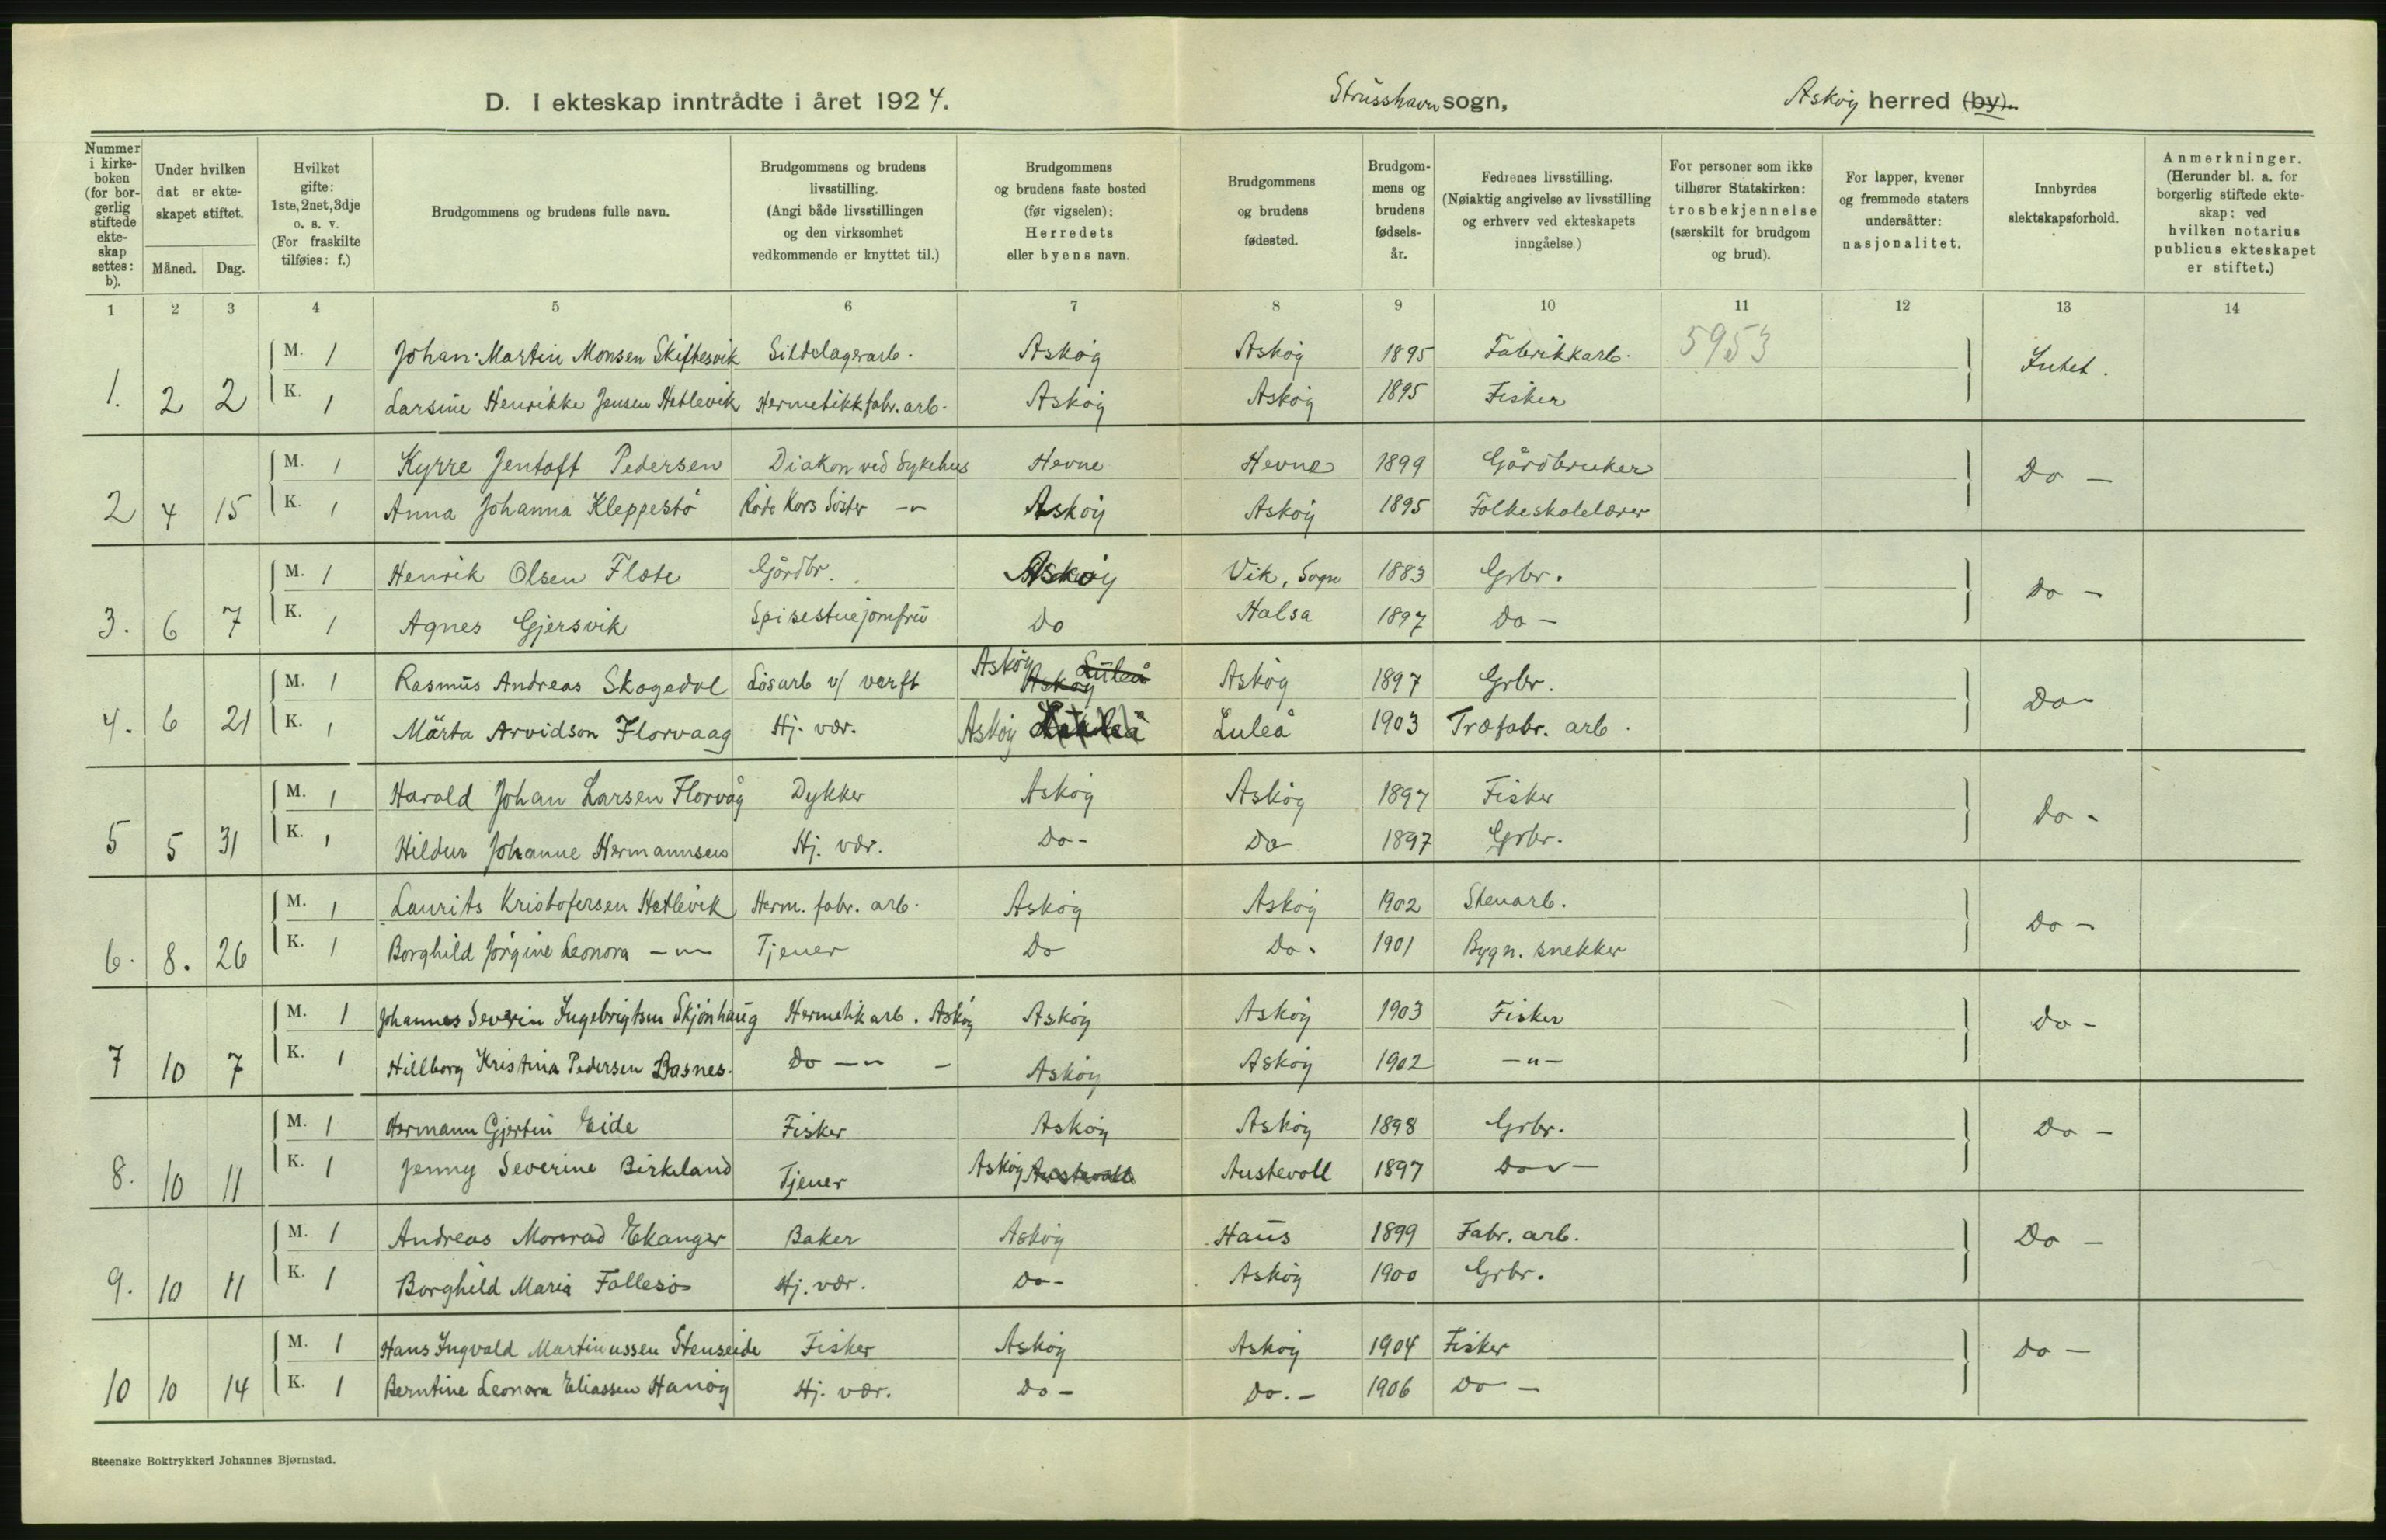 D. I ekteskap inntrådte i året 1924. Strusshavn sogn, Askøy herred (by).
Nummer i kirke-boken (for bor-gerlig stiftede ekte-skap settes: b).
Under hvilken dat er ekte-skapet stiftet.
Måned. Dag.
Hvilket gifte: 1ste, 2net, 3dje o. s. v. (For fraskilte tilføies: f.)
Brudgommens og brudens fulle navn.
Brudgommens og brudens livsstilling. (Angi både livsstillingen og den virksomhet vedkommende er knyttet til.)
Brudgommens og brudens faste bosted (før vigselen): Herredets eller byens navn.
Brudgommens og brudens fødested.
Brudgom-mens og brudens fødsels-år.
Fedrenes livsstilling. (Nøiaktig angivelse av livsstilling og erhverv ved ekteskapets inngåelse)
For personer som ikke tilhører Statskirken: trosbekjennelse (særskilt for brudgom og brud).
For lapper, kvener og fremmede staters undersåtter: nasjonalitet.
Innbyrdes slektskapsforhold.
Anmerkninger. (Herunder bl. a. for borgerlig stiftede ekte-skap: ved hvilken notarius publicus ekteskapet er stiftet.)
1 2 3 4 5 6 7 8 9 10 11 12 13 14
M. 1 Johan Martin Monsen Skiftesvik Sildelagerarb. Askøy Askøy 1895 Fabrikkarb. 5953 Intet.
1. 2 2 K. 1 Larsine Henrikke Jensen Hetlevik Hermetikkfabr. arb. Askøy Askøy 1895 Fisker
M. 1 Kyrre Jentoft Pedersen Diakon ved Sykehus Hevne Hevne 1899 Gårdbruker Do —
2 4 15 K. 1 Anna Johanna Kleppestø Røde Kors Søster —„— Askøy Askøy 1895 Folkeskolelærer
M. 1 Henrik Olsen Fløte Gårdbr. Askøy Vik, Sogn 1883 Grbr. Do —
3. 6 7 K. 1 Agnes Gjersvik Spisestuejomfru Do Halsa 1897 Do —
M. 1 Rasmus Andreas Skogedal Løsarb v/ verft Askøy Askøy Luleå Askøy 1897 Grbr. Do —
4. 6 21 K. 1 Märta Arvidson Florvaag Hj. vær. Askøy Luleå Luleå 1903 Træfabr. arb.
M. 1 Harald Johan Larsen Florvåg Dykker Askøy Askøy 1897 Fisker Do -
5 5 31 K. 1 Hildur Johanne Hermannsen Hj. vær. Do - Do 1897 Grbr.
M. 1 Laurits Kristofersen Hetlevik Herm. fabr. arb. Askøy Askøy 1902 Stenarb. Do -
6. 8. 26 K. 1 Borghild Jørgine Leonora —„— Tjener Do Do - 1901 Bygn. snekker
M. 1 Johannes Severin Ingebrigtsen Skjønhaug Hermetikarb. Askøy Askøy Askøy 1903 Fisker Do -
7 10 7 K. 1 Hillborg Kristina Pedersen Basnes. Do —„— - Askøy Askøy 1902 —„—
M. 1 Hermann Gjertin Eide Fisker Askøy Askøy 1898 Grbr. Do —
8. 10 11 K. 1 Jenny Severine Birkeland Tjener Askøy Austevoll Austevoll 1897 Do —
M. 1 Andreas Monrad Ekanger Baker Askøy Haus 1899 Fabr. arb. Do —
9. 10 11 K. 1 Borghild Maria Follesø Hj. vær. Do - Askøy 1900 Grbr.
M. 1 Hans Ingvald Martinussen Stenseide Fisker Askøy Askøy 1904 Fisker Do —
10 10 14 K. 1 Berntine Leonora Eliassen Hanøy Hj. vær. Do - Do. - 1906 Do —
Steenske Boktrykkeri Johannes Bjørnstad.